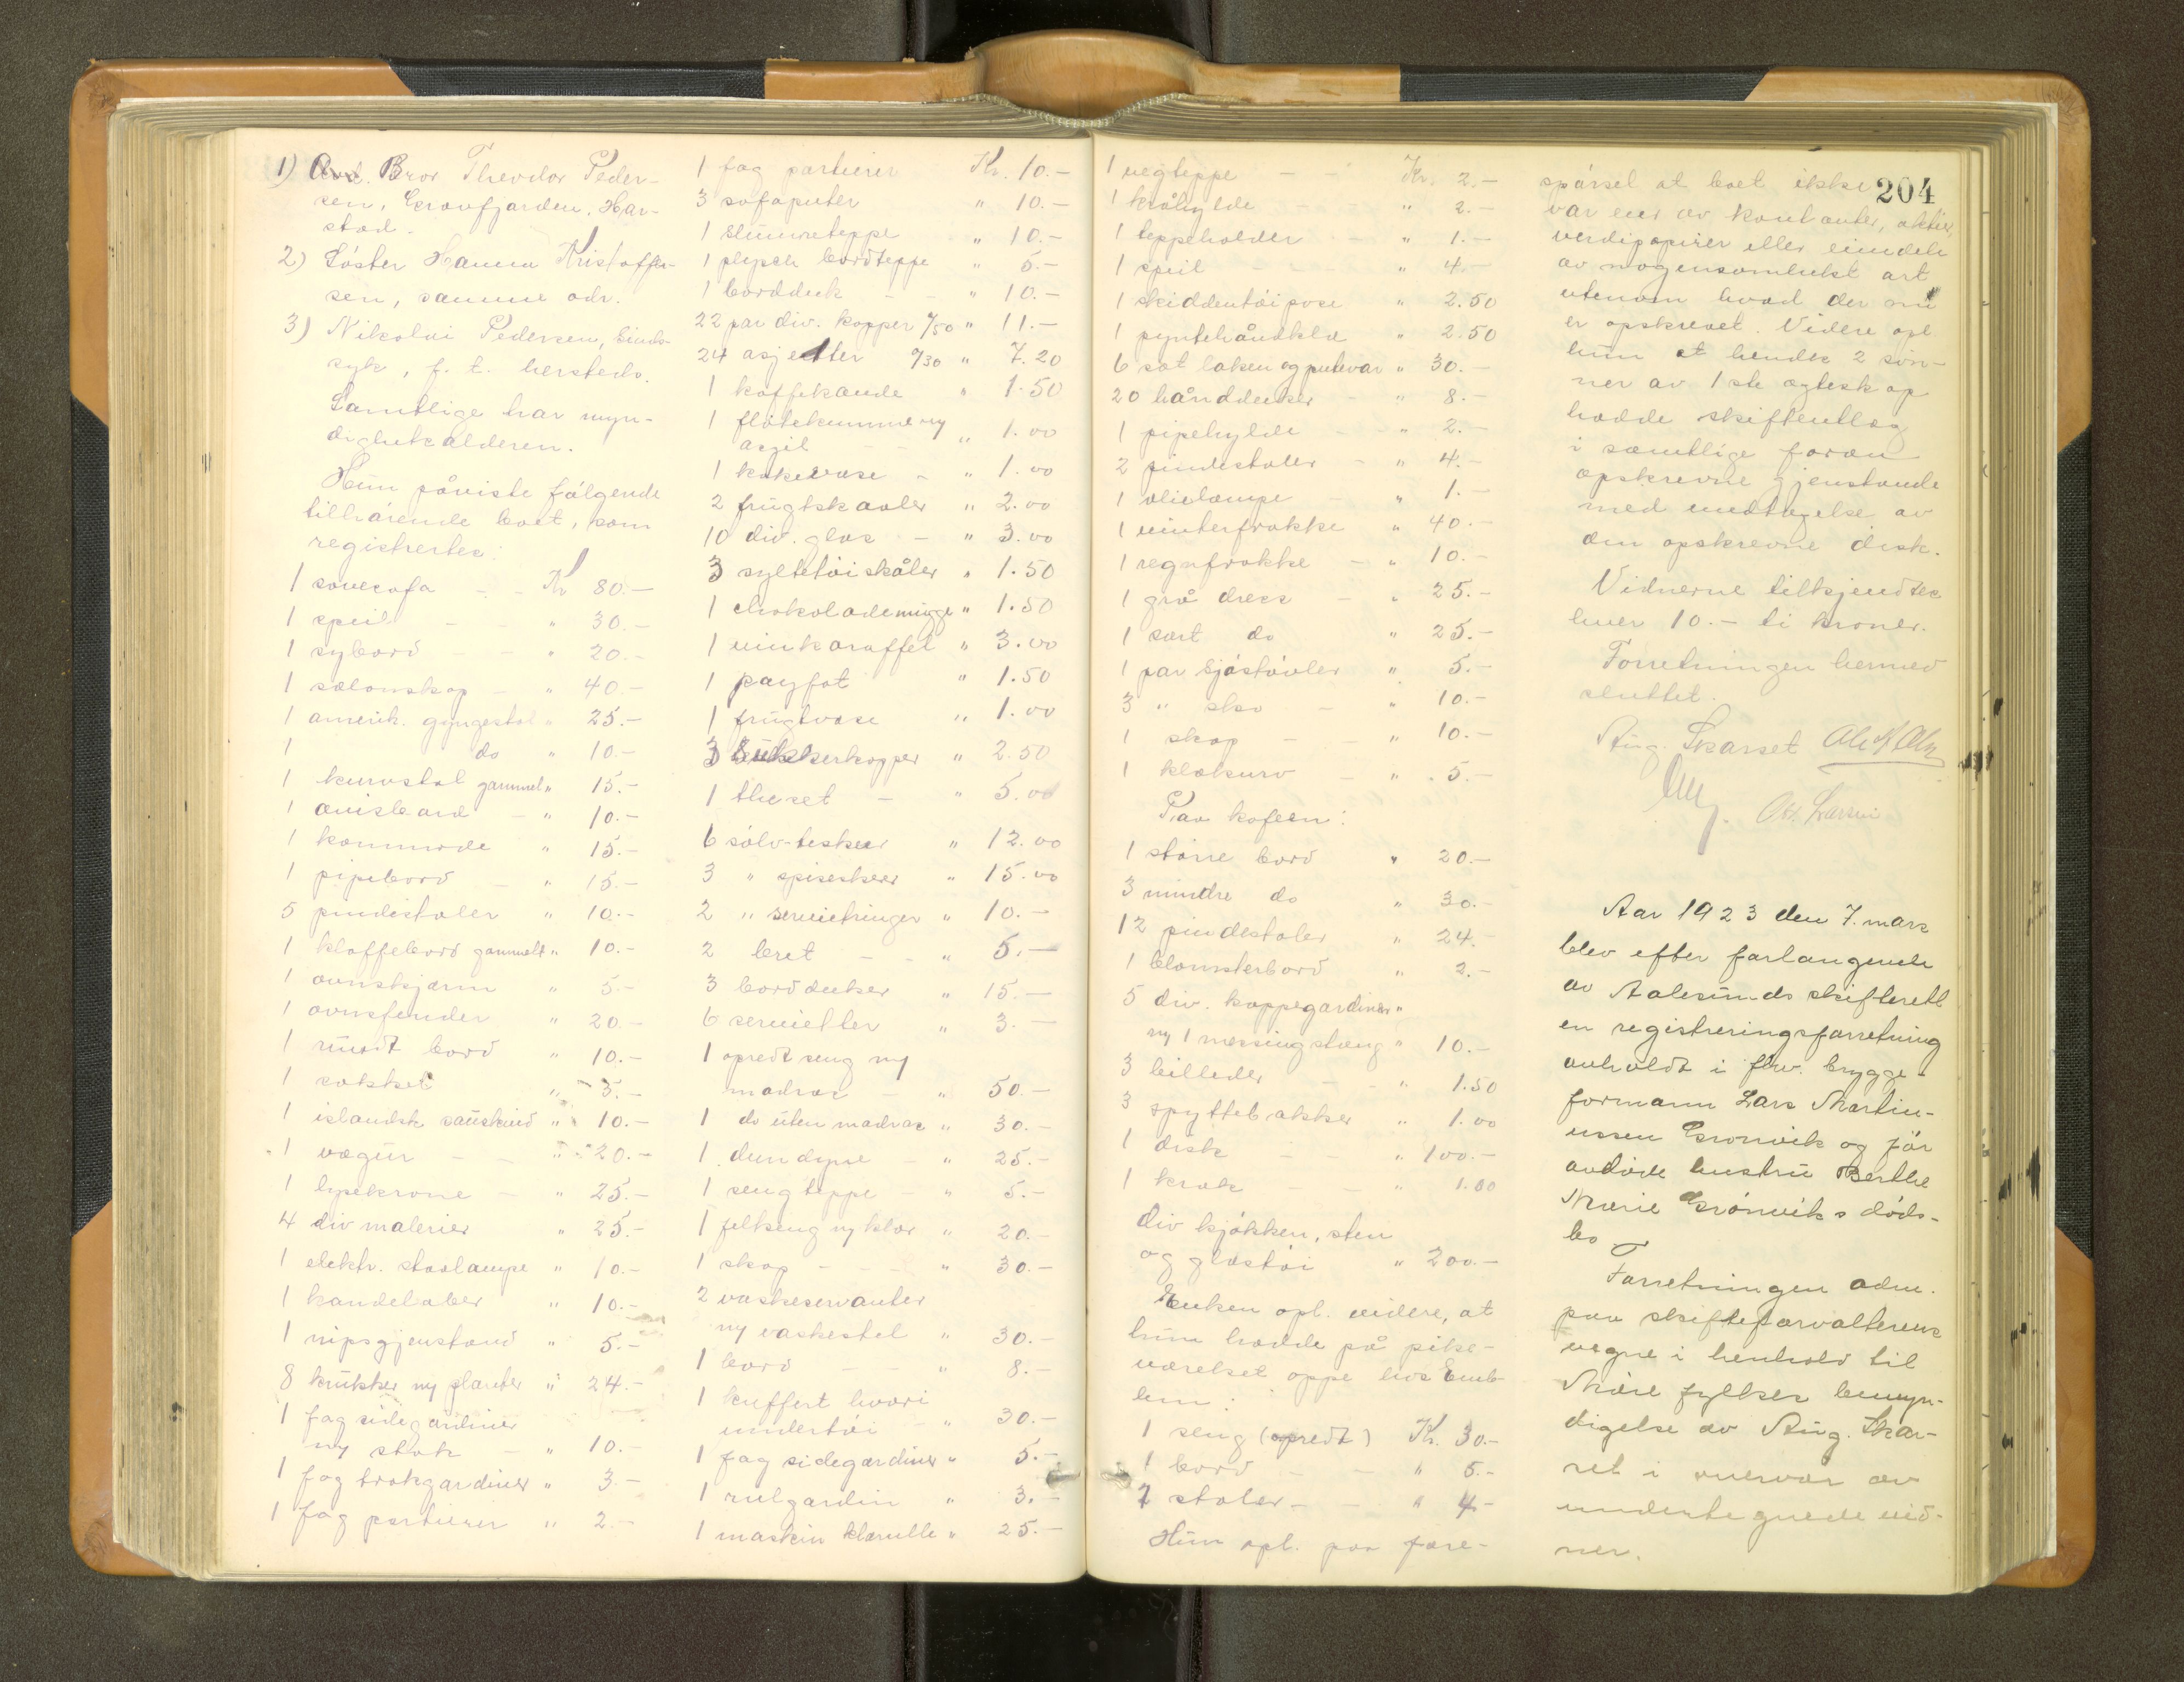 1) Bror Theodor Peder-
sen, Grovfjorden, Har-
stad.
2) Søster Hanna Kristoffer-
sen, samme adr.
3) Nikolai Pedersen, sinds-
syk, f. t. hersteds.
Samtlige har myn-
dighetsalderen.
Hun påviste følgende
tilhørende boet, som
registrertes:
1 sovesofa - - Kr 80.-
1 speil - - " 30.-
1 sybord - - " 20.-
1 salonskap - " 40.-
1 amerik. gyngestol " 25.-
1 do " 10.-
1 kurvstol gammel " 15.-
1 avisbord - " 10.-
1 kommode " 15.-
1 pipebord - " 15.-
5 pindestoler " 10.-
1 klaffebord gammelt " 10.-
1 ovnskjærm " 5.-
1 ovnsfender " 20.-
1 rundt bord " 10.-
1 sokkel " 3.-
1 islandsk saueskind " 10.-
1 vægur - - " 20.-
1 lysekrone - " 25.-
4 div malerier " 25.-
1 elektr. staalampe " 10.-
1 kandelaber " 10.-
1 nipsgjenstand " 5.-
8 krukker m/ planter " 24.-
1 fag sidegardiner
m/ stok - " 10.-
1 fag trækgardiner " 3.-
1 fag portierer " 2.-
1 fag portierer Kr. 10.-
3 sofaputer " 10.-
1 slumreteppe " 10.-
1 plysch bordteppe " 5.-
1 bordduk - - " 10.-
22 par div. kopper a/50 " 11.-
24 asjetter a/30 " 7.20
1 kaffekande " 1.50
1 fløtekumme m/
asjet - " 1.00
1 kakevase - " 1.00
2 frugtskaaler " 2.00
10 div. glas - " 3.00
3 syltetøiskåler " 1.50
1 chokolademugge " 1.50
1 vinkaraffel " 3.00
1 fat " 1.50
1 frugtvase " 1.00
3 Sukkerkopper " 2.50
1 theset - " 5.00
6 sølv-teskeer " 12.00
3 " spiseskeer " 15.00
2 " servietringer " 10.-
2 bret - - " 5.-
3 bordduker " 15.-
6 servietter " 3.-
1 opredt seng m/
madras - " 50.-
1 do uten madras " 30.-
1 dundyne - " 25.-
1 sengteppe - " 5.-
1 feltseng m/ klær " 20.-
1 skap - - " 30.-
2 vaskeservanter
m/ vaskestel " 30.-
1 bord - " 8.-
1 kuffert hvori
undertøi - " 30.-
1 fag sidegardiner " 5.-
1 rulgardin " 3.-
1 maskin klærulle " 25.-
1 vegteppe - - Kr. 2.-
1 kråhylde - - " 2.-
1 teppeholder - " 1.-
1 speil - - - " 4.-
1 skiddentøipose " 2.50
1 pyntehåndklæ " 2.50
6 sæt laken og putevar " 30.-
20 hånddukser - " 8.-
1 pipehylde - " 2.-
2 pindestoler - " 4.-
1 olielampe - " 1.-
1 vinterfrakke " 40.-
1 regnfrakke - " 10.-
1 grå dress - " 25.-
1 sort do " 25.-
1 par sjøstøvler " 5.-
3 " sko - " 10.-
1 skap - - " 10.-
1 klækurv - " 5.-
Paa kafeen:
1 større bord " 20.-
3 mindre do " 30.-
12 pindestoler " 24.-
1 blomsterbord " 2.-
5 div. kappegardiner "
m/ 1 messingstang " 10.-
3 billeder - - " 1.50
3 spyttebakker " 1.00
1 disk - - " 100.-
1 krak - - " 1.00
div kjøkken, sten
og glastøi " 200.-
Enken opl. videre, at
hun hadde på pike-
værelset oppe hos Emb-
lem:
1 seng (opredt) Kr. 30.-
1 bord - - " 5.-
2 stoler - - " 4.-
Hun opl. paa fore-
204
spørsel at boet ikke
var eier av kontanter, aktier,
verdipapirer eller eiendele
av nogensomhelst art
utenom hvad der nu
er opskrevet. Videre opl
hun at hendes 2 søn-
ner av 1ste egteskap
hadde skifteutlæg
i samtlige foran
opskrevne gjenstande
med undtagelse av
den opskrevne disk.
Vidnerne tilkjendtes
hver 10.- ti kroner.
Forretningen hermed
sluttet.
Aug. Skarset
Larsen
Aar 1923 den 7. mars
blev efter forlangende
av Aalesunds skifterett
en registreringsforretning
avholdt i fhv. brygge-
formann Lars Martin-
ussen Grønvik og før
avdøde hustru Berthe
Marie Grønviks døds-
bo.
Forretningen adm.
paa skifteforvalterens
vegne i henhold til
Møre fylkes bemyn-
digelse av Aug. Skar-
set i overvær av
undertegnede vid-
ner.